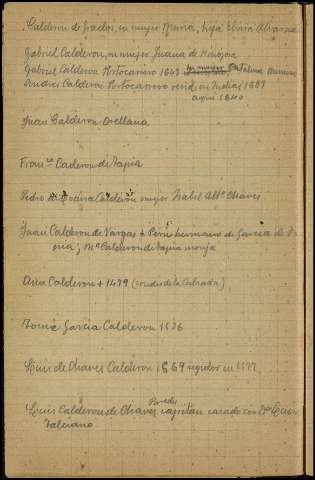 Calderon de Prados, su mujer Maria, hija Elvira Alvarez
Gabriel Calderon, su mujer Juana de Hinojosa
Gabriel Calderon Portocarrero 1643 su mujer Catalina
Andres Calderon Portocarrero resid. en Indias 1687
aqui 1640
Juan Calderon Orellana
Franca Calderon de Tapia
Pedro de Calderon mujer Isabel Alta Chaves
Juan Calderon de Vargas + Peru hermano de Garcia de Ta
pia; Ma Calderon de Tapia monja
Aria Calderon + 1439 (
Tomé Garcia Calderon 1536
Luis de Chaves Calderon 1569 regidor en 1577
Paredes
Luis Calderon de Chaves capitan casado con Da
Valeriano